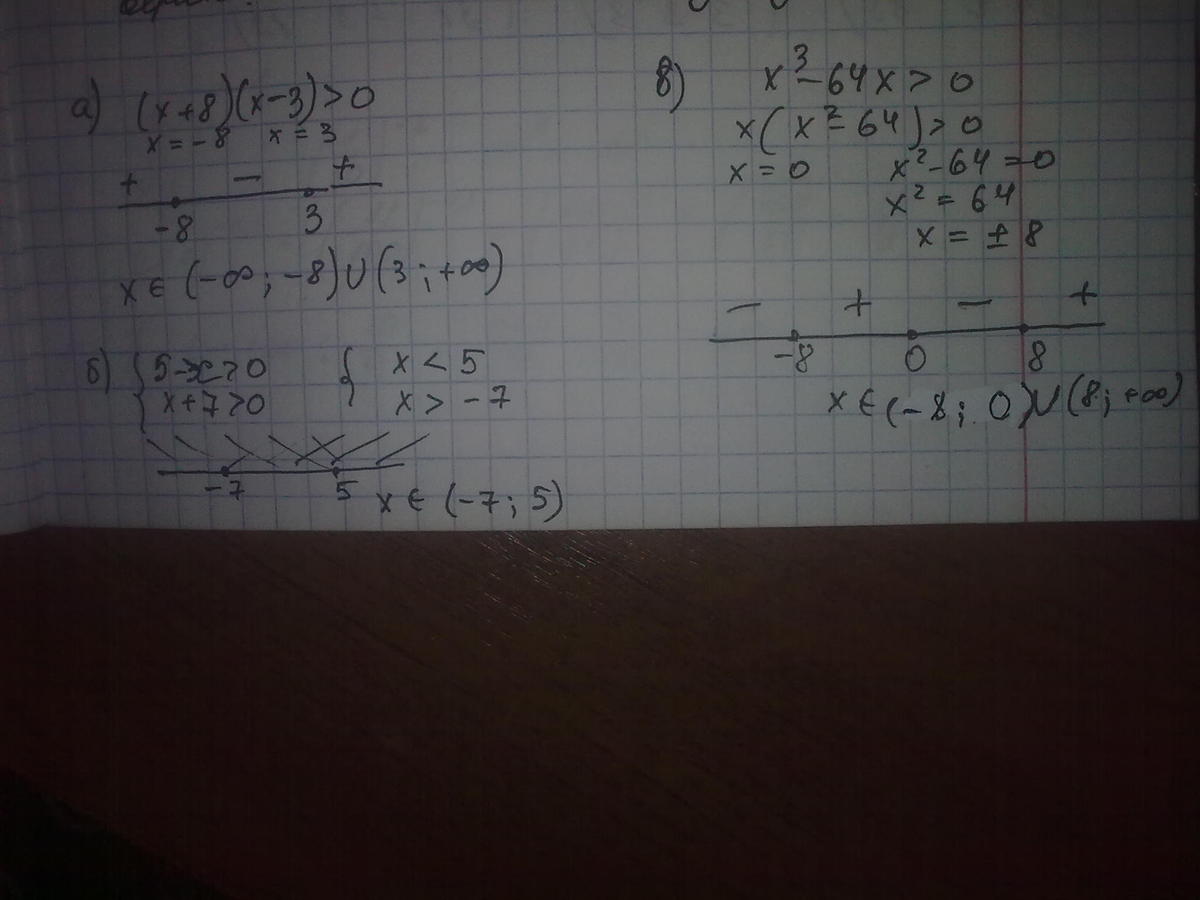 а) (x+8)(x-3)>0
x=-8 x=3
+ - +
-8 3
x∈(-∞;-8)∪(3;+∞)
б) { 5-x>0 { x<5
x+7>0 x>-7
-7 5 x∈(-7;5)
в) x³-64x>0
x(x²-64)>0
x=0 x²-64=0
x²=64
x=±8
- + - +
-8 0 8
x∈(-8;0)∪(8;+∞)